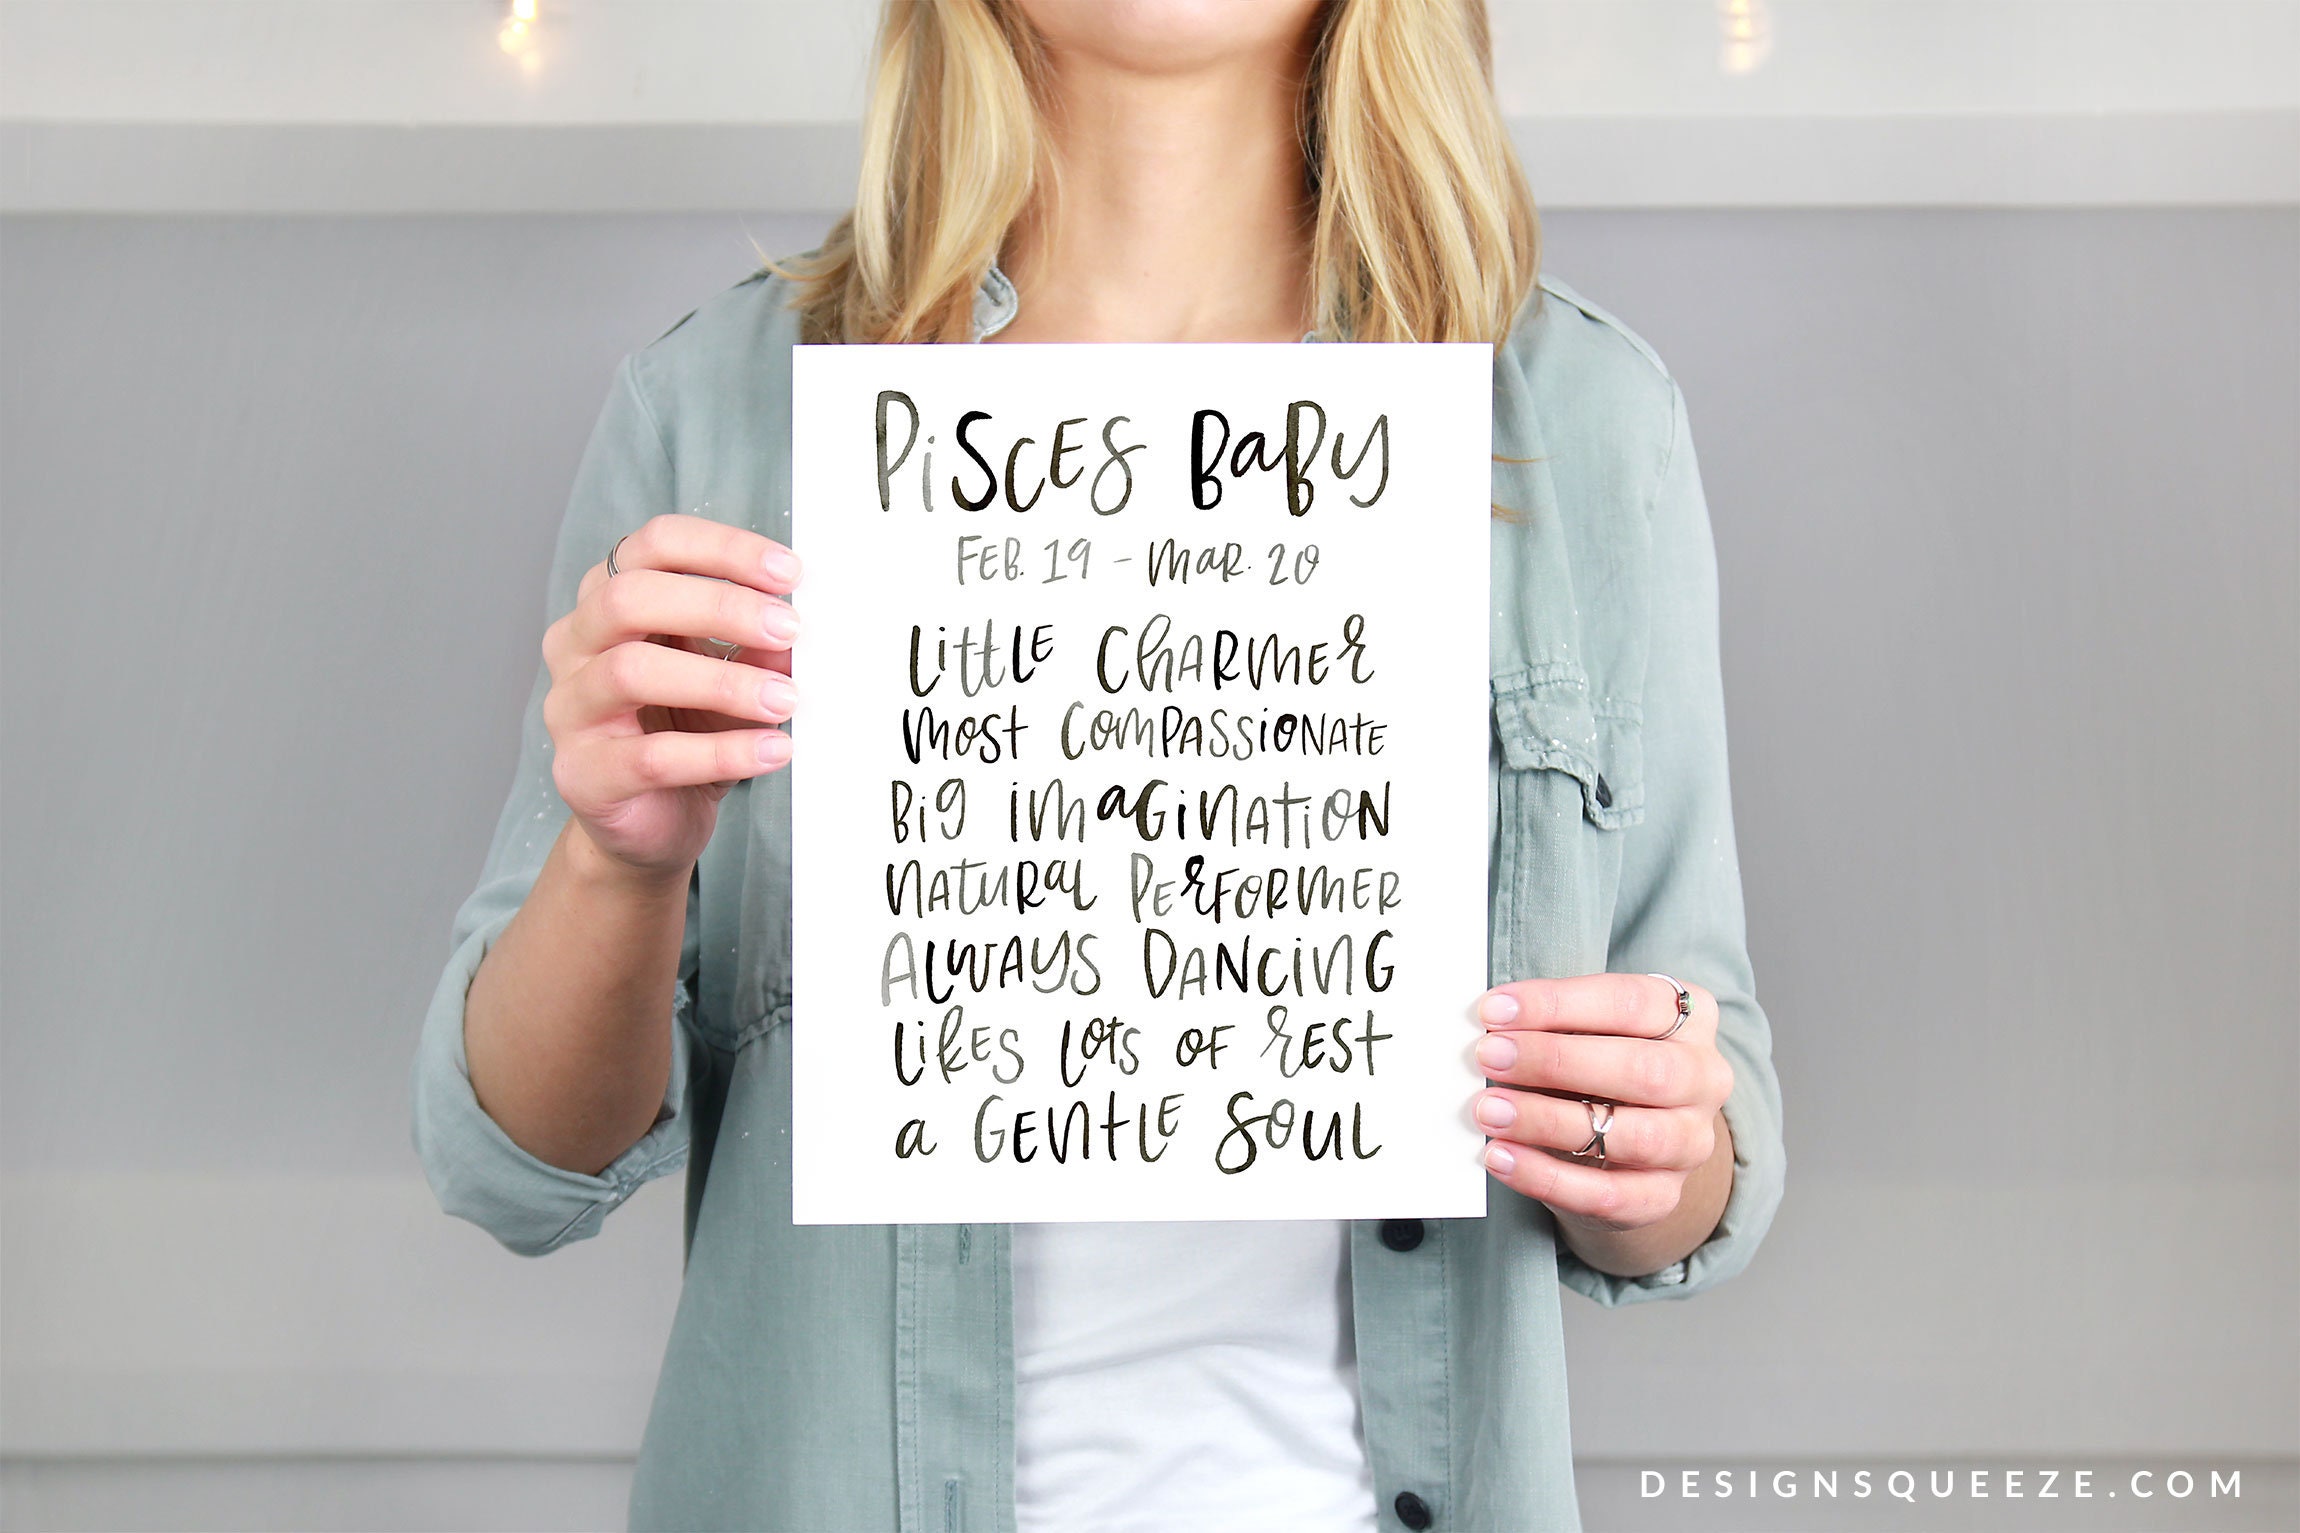 Pisces Baby
Feb. 19 - Mar. 20
Little Charmer
Most Compassionate
Big Imagination
Natural Performer
Always Dancing
Likes Lots of Rest
A Gentle Soul
DESIGNSQUEEZE.COM